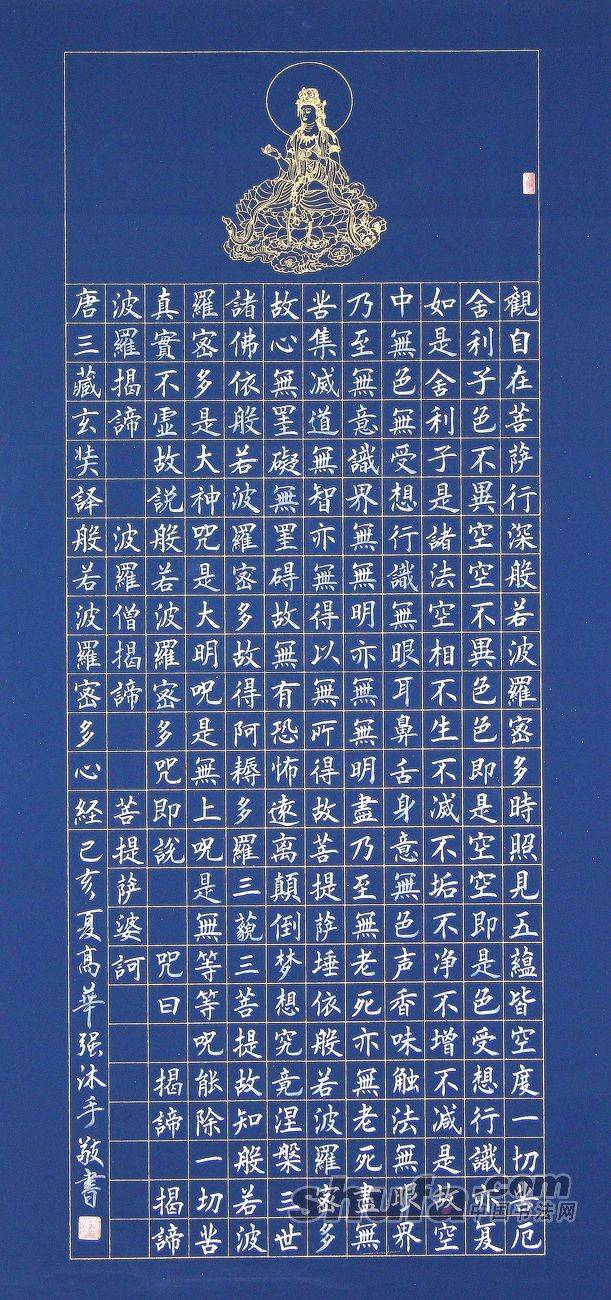 觀自在菩萨行深般若波羅密多時照見五蘊皆空度一切苦厄
舍利子色不異空空不異色色即是空空即是色受想行識亦复
如是舍利子是諸法空相不生不滅不垢不净不增不减是故空
中無色無受想行識無眼耳鼻舌身意無色声香味触法無眼界
乃至無意識界無無明亦無無明盡乃至無老死亦無老死盡無
苦集滅道無智亦無得以無所得故菩提萨埵依般若波羅密多
故心無罣礙無罣碍故無有恐怖遠离顛倒梦想究竟涅槃三世
諸佛依般若波羅密多故得阿耨多羅三藐三菩提故知般若波
羅密多是大神咒是大明呪是無上呪是無等等呪能除一切苦
真實不虚故説般若波羅密多咒即説 咒曰 揭諦 揭諦
波羅揭諦 波羅僧揭諦 菩提萨婆訶
唐三藏玄奘譯般若波羅密多心経己亥夏高華强沐手敬書
shufa.com
中国书法网